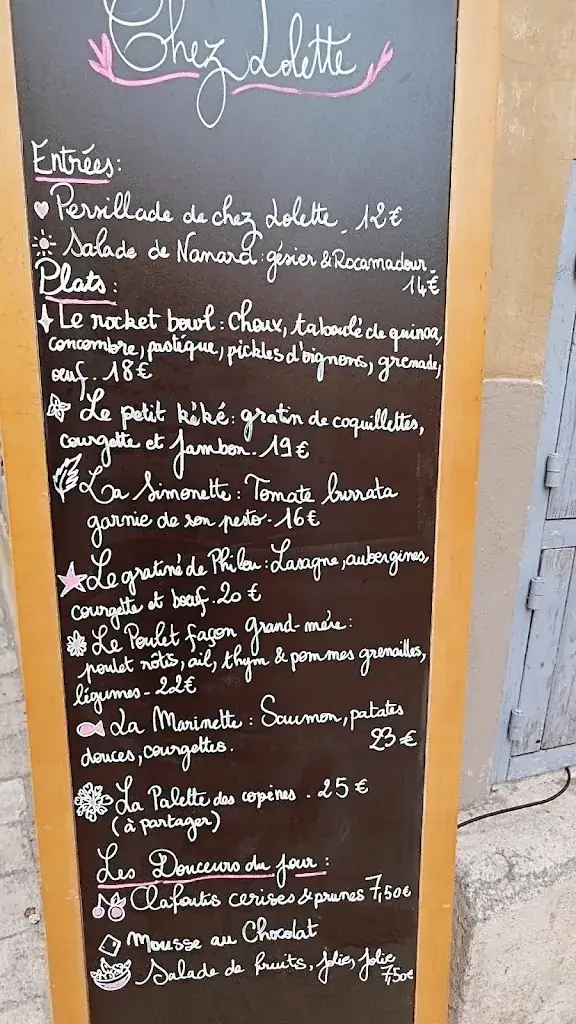 Chez Lolette
Entrées:
Persillade de chez Lolette. 12€
Salade de Nanard: gésier & Rocamadour.
14€
Plats:
Le rocket bowl: Choux, taboulé de quinoa,
concombre, pastèque, pickles d'oignons, grenade,
œuf. 18€
Le petit kéké: gratin de coquillettes,
courgette et jambon. 19€
La Simonette: Tomate burrata
garnie de son pesto. 16€
Le gratiné de Philou: Lasagne, aubergines,
courgette et bœuf. 20€
Le Poulet façon grand-mère:
poulet rôtis, ail, thym & pommes grenailles,
légumes - 22€
La Marinette: Saumon, patates
douces, courgettes. 23€
La Palette des copines. 25€
(à partager)
Les Douceurs du jour:
Clafoutis cerises & prunes 7,50€
Mousse au Chocolat
Salade de fruits, jolie, jolie
7,50€